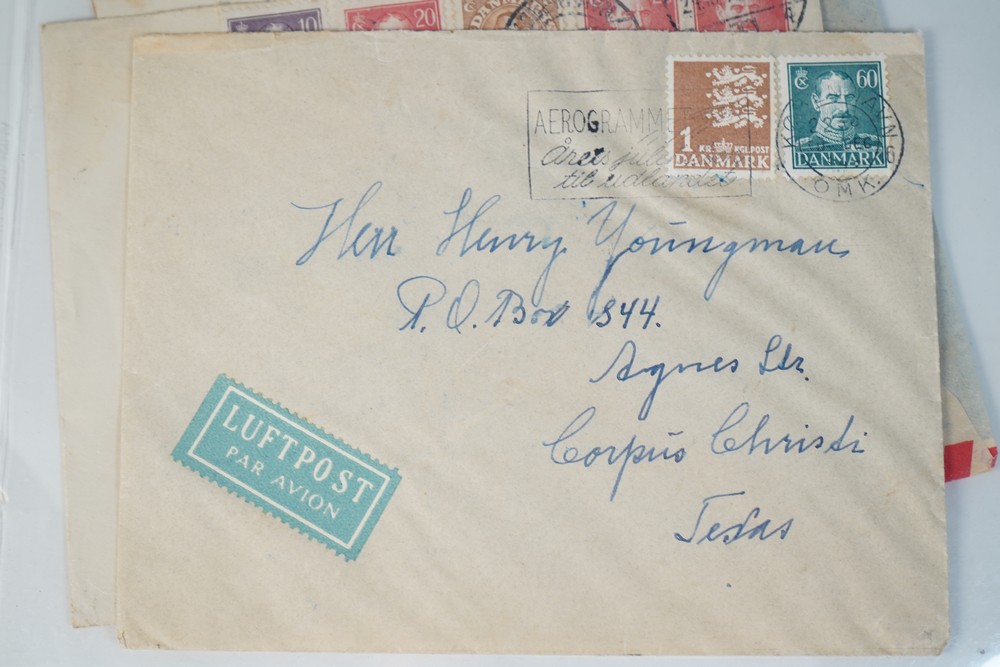 10
20
DANMARK
AEROGRAMMER
Årets jule
til udlandet
1 KR. KGL.POST
DANMARK
60
DANMARK
OMK.
Herr Henry Youngman
P.O. Box 1844.
Agnes Str.
Corpus Christi
Texas
LUFTPOST
PAR AVION